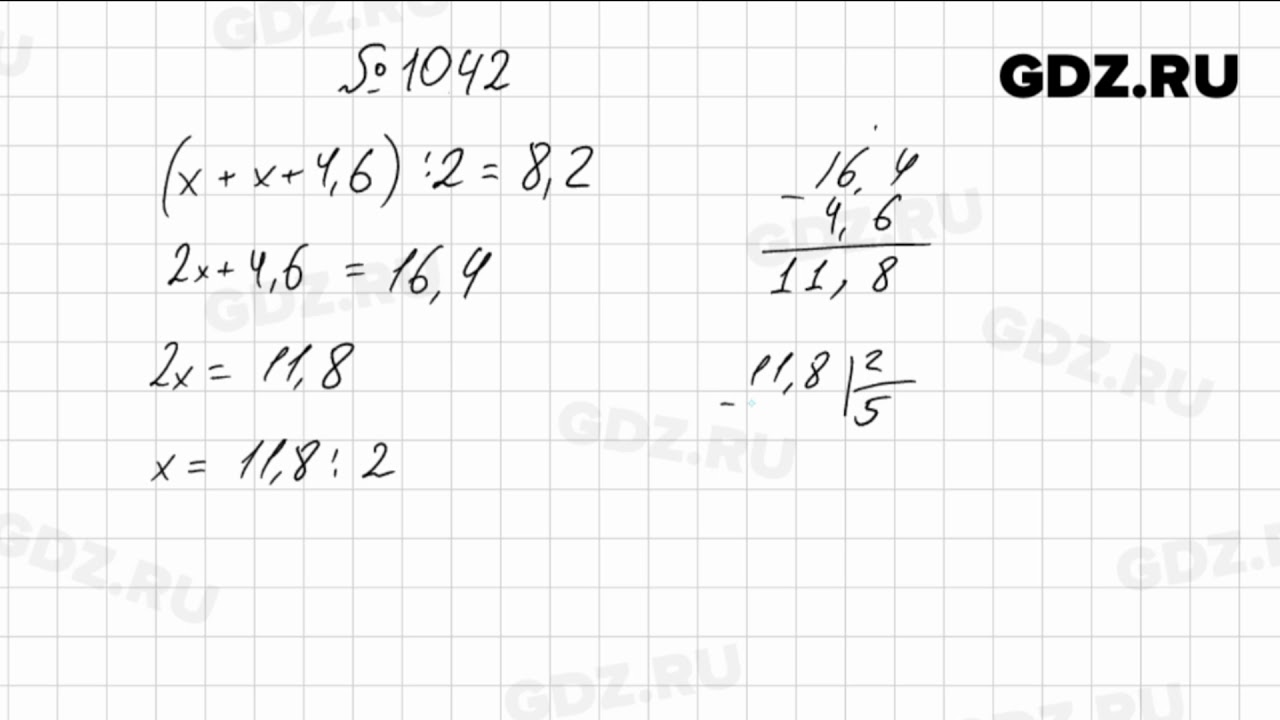 № 1042
GDZ.RU
(x + x + 4,6) : 2 = 8,2
2x + 4,6 = 16,4
2x = 11,8
x = 11,8 : 2
- 16,4
4,6
11,8
- 11,8 | 2
5
GDZ.RU
GDZ.RU
GDZ.RU
GDZ.RU
GDZ.RU
GDZ.RU
GDZ.RU